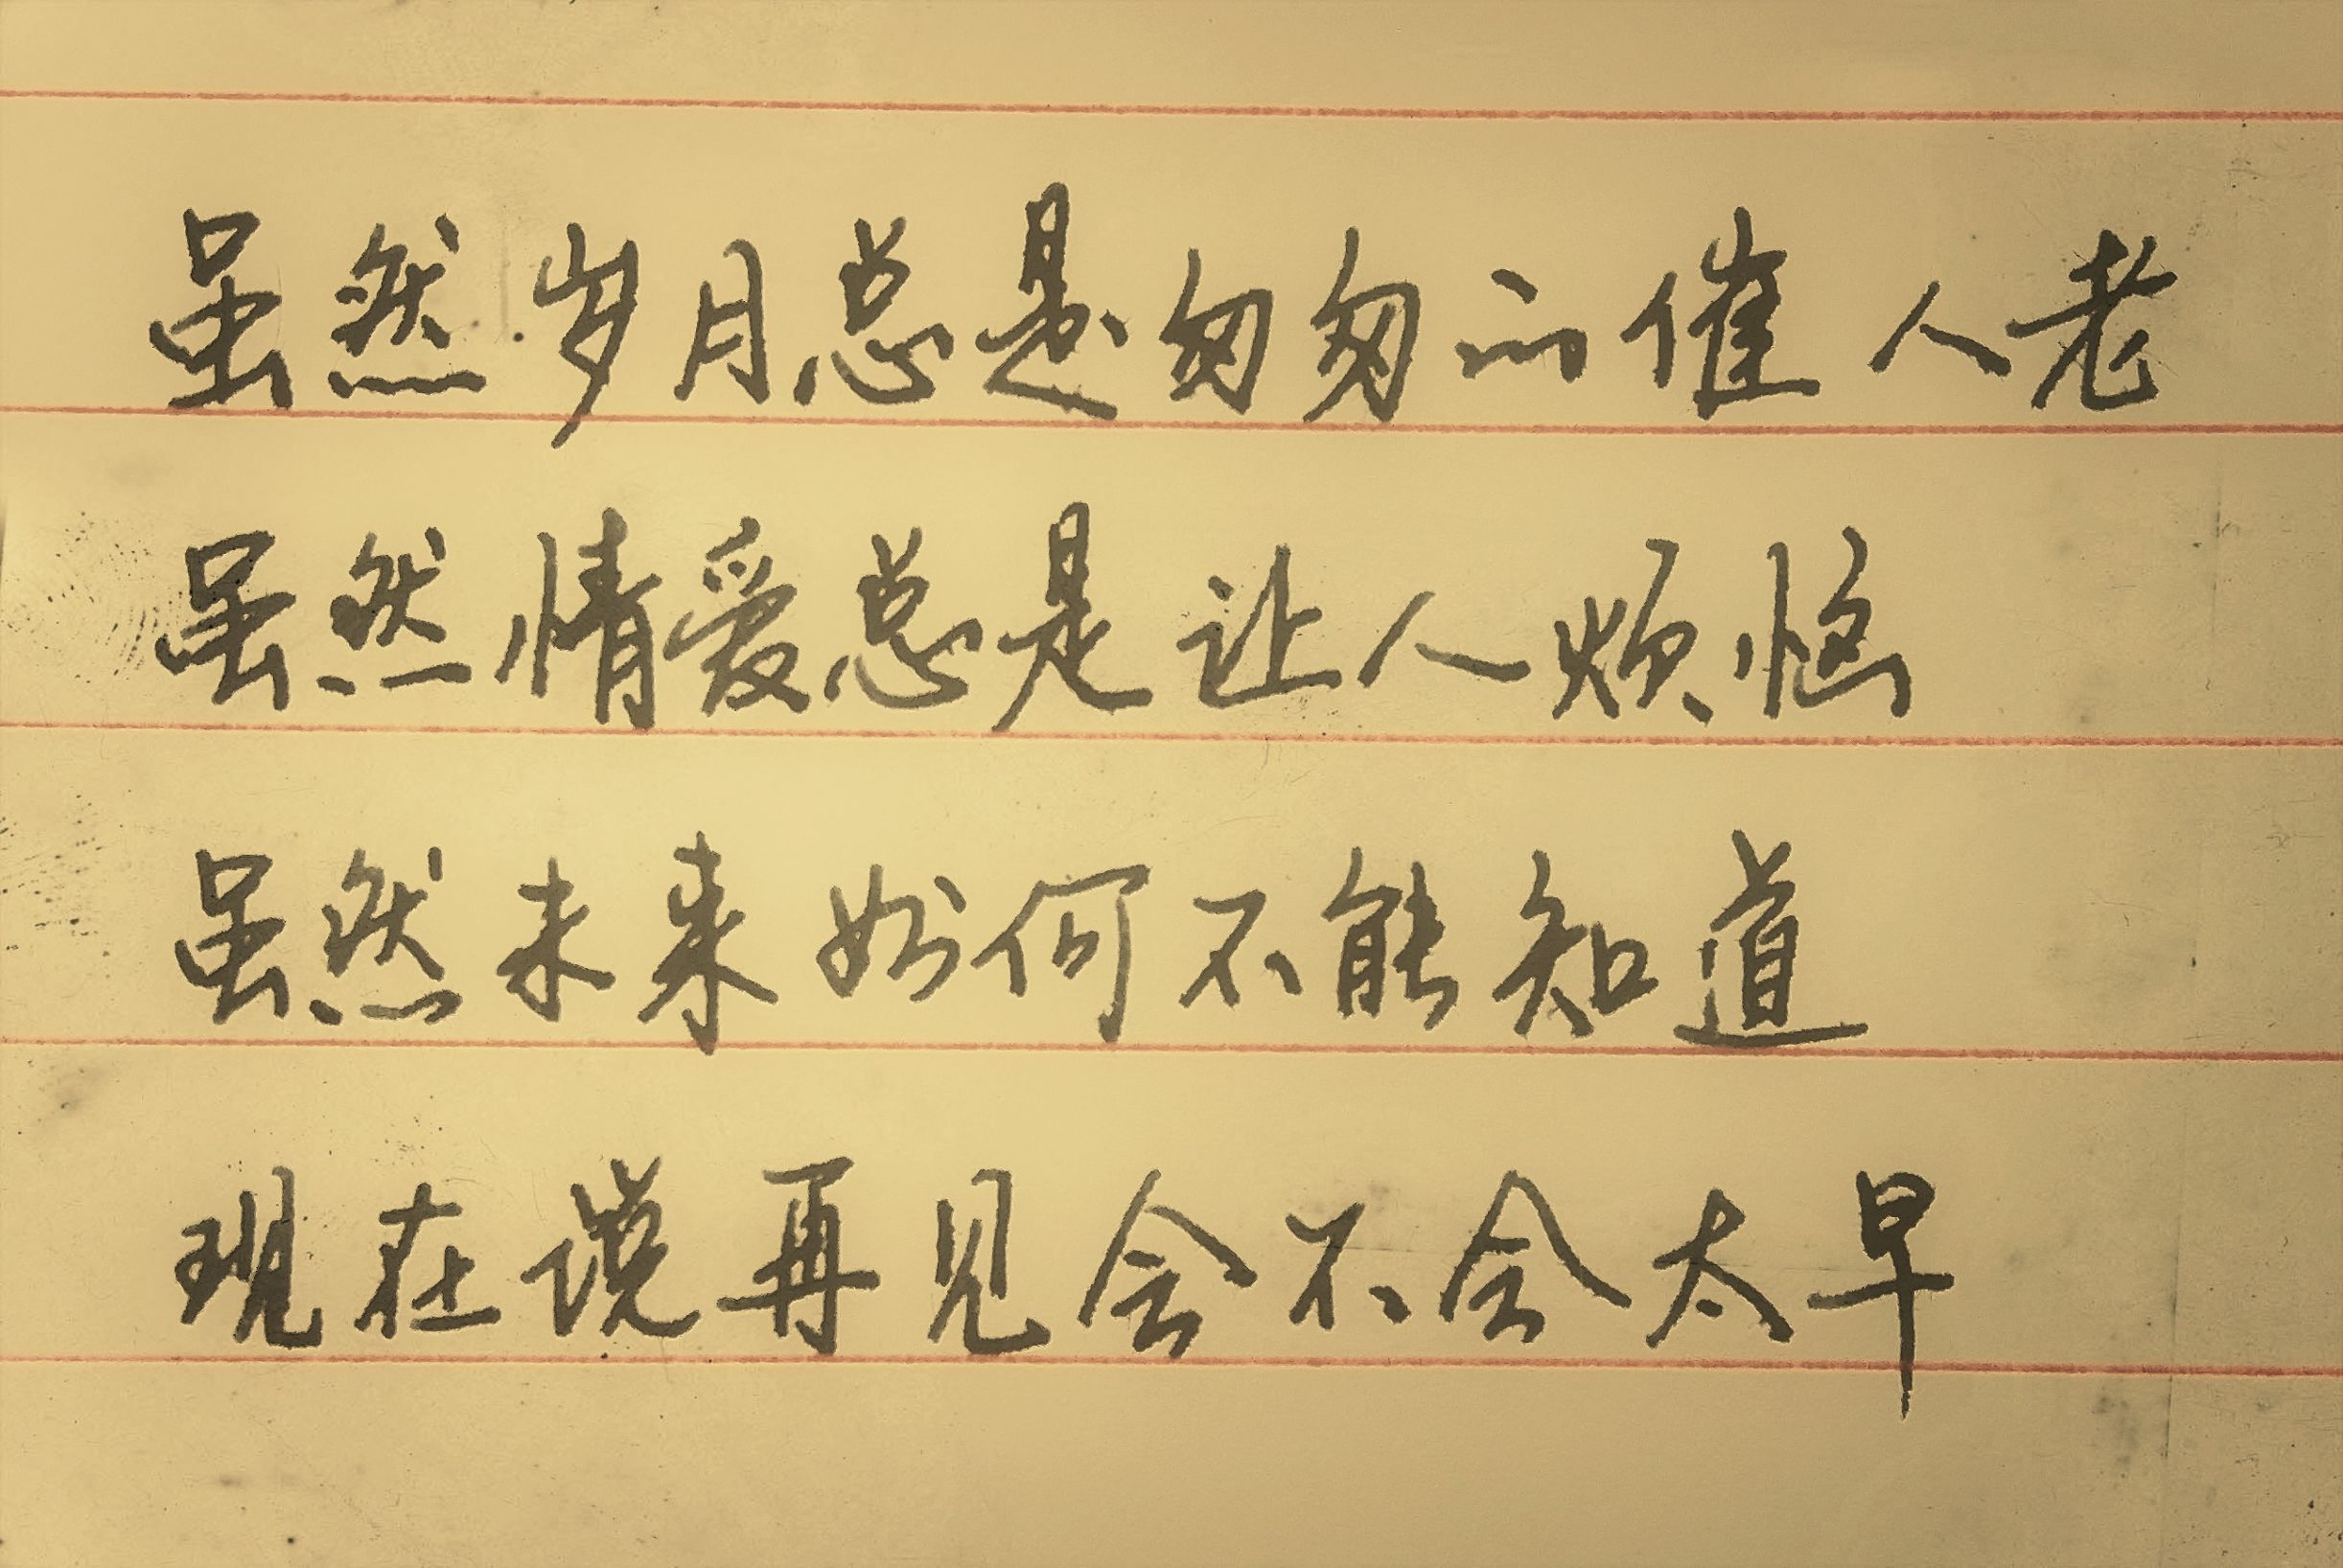 虽然岁月总是匆匆的催人老
虽然情爱总是让人烦恼
虽然未来如何不能知道
现在说再见会不会太早